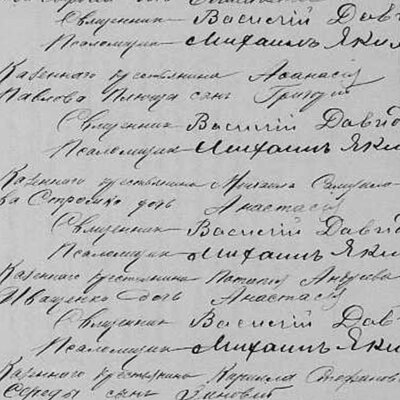 Священникъ Василій Дав
Псаломщик Михаилъ Яки
Казеннаго крестьянина Аѳанасія
Павлова Плюща сынъ Григорій
Священник Василій Давид
Псаломщик Михаилъ Яки
Казеннаго крестьянина Михаила Самуило-
ва дочь Анастасія
Священник Василій Давид
Псаломщик Михаилъ Яки
Казеннаго крестьянина Андреева
Иващенко дочь Анастасія
Священник Василій Дав
Псаломщик Михаилъ Яки
Казеннаго крестьянина Кирилла Стефанов
Середы сынъ